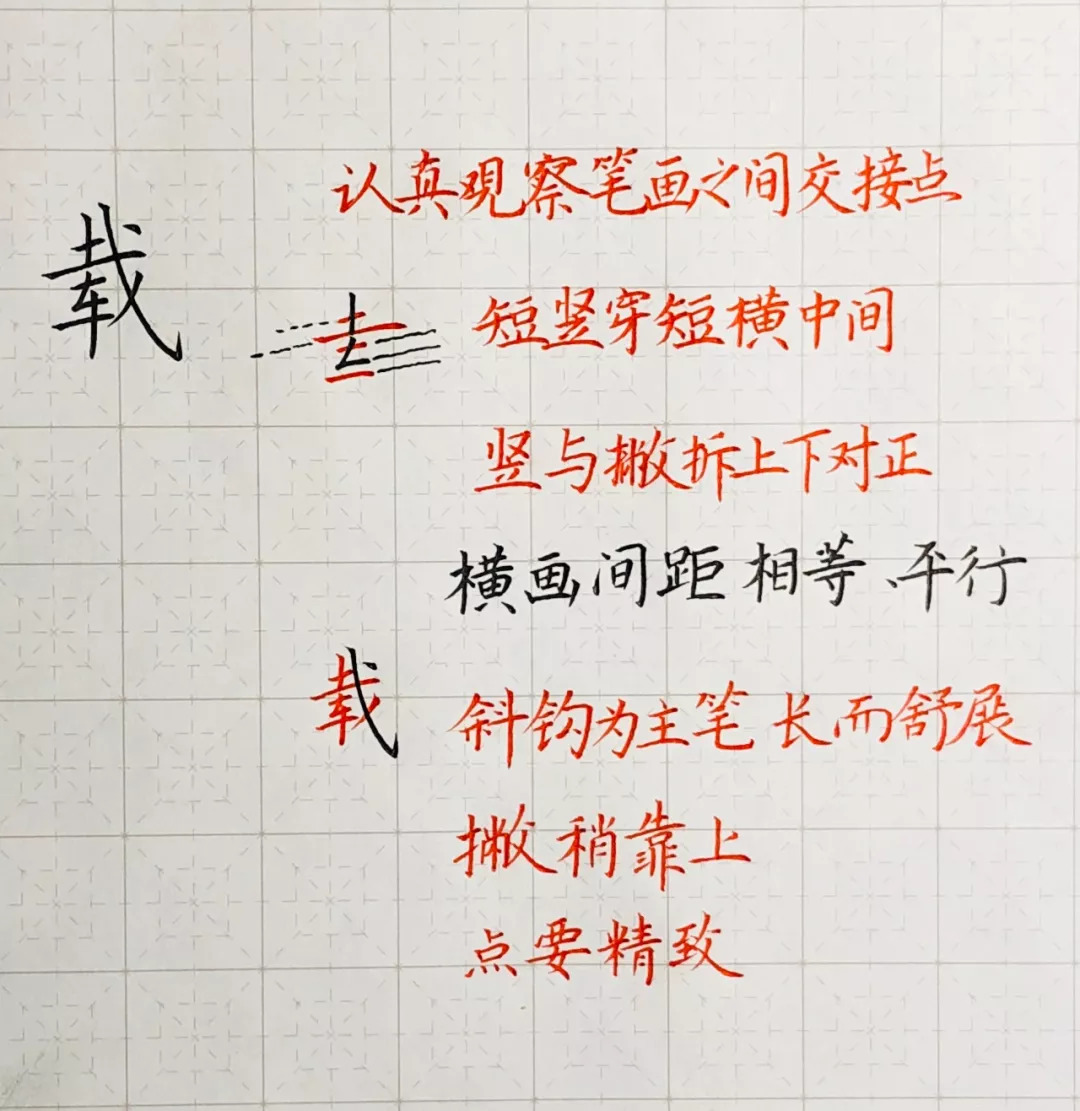 认真观察笔画之间交接点
载
短竖穿短横中间
竖与撇折上下对正
横画间距相等、平行
载
斜钩为主笔 长而舒展
撇稍靠上
点要精致